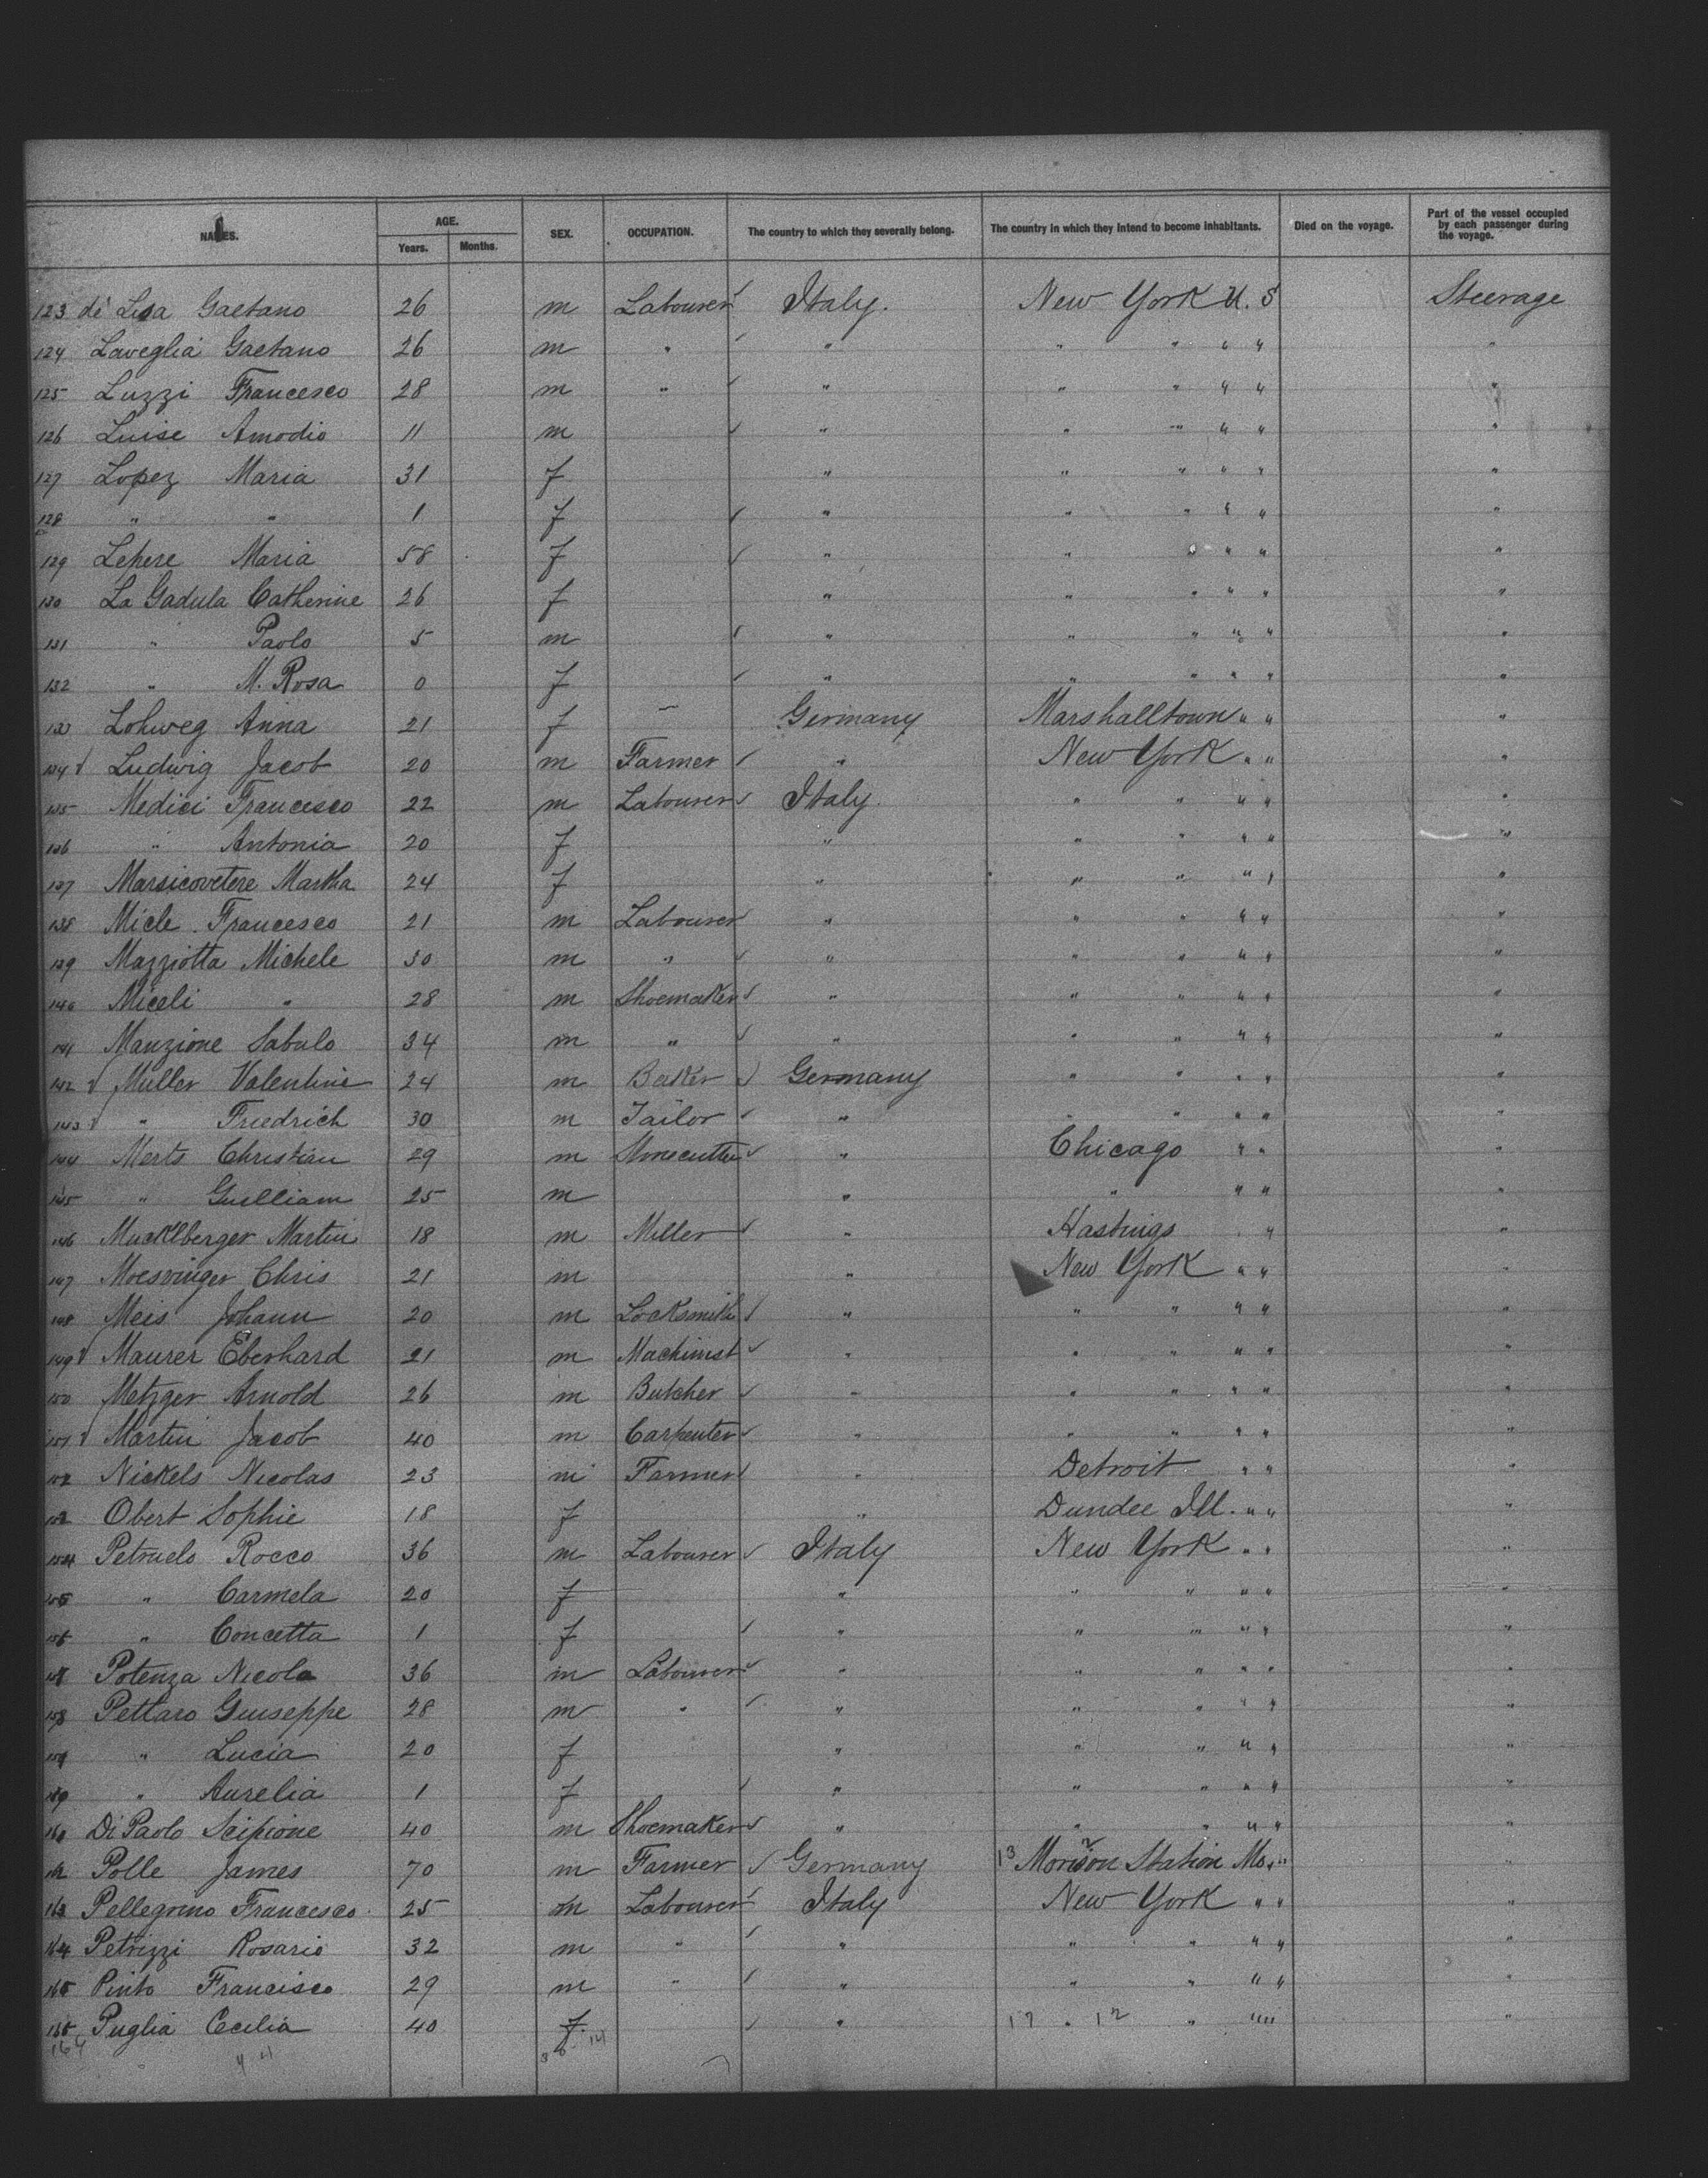 NAMES. AGE. SEX. OCCUPATION. The country to which they severally belong. The country in which they intend to become inhabitants. Died on the voyage. Part of the vessel occupied by each passenger during the voyage.
Years. Months.
123 di Lisa Gaetano 26 m Labourer Italy. New York U. S Steerage
124 Laveglia Gaetano 26 m " " " " " " "
125 Luzzi Francesco 28 m " " " " " " "
126 Luise Amodio 11 m " " " " " "
127 Lopez Maria 31 f " " " " " "
128 " " 1 f " " " " " "
129 Lepere Maria 58 f " " " " " "
130 La Gadula Catherine 26 f " " " " " "
131 " Paolo 5 m " " " " " "
132 " M. Rosa 0 f " " " " " "
133 Lohweg Anna 21 f Germany Marshalltown " " "
134 Ludwig Jacob 20 m Farmer " New York " " "
135 Medici Francesco 22 m Labourer Italy. " " " " "
136 " Antonia 20 f " " " " " "
137 Marsicovetere Martha 24 f " " " " " "
138 Micle Francesco 21 m Labourer " " " " " "
139 Mazziotta Michele 30 m " " " " " " "
140 Miceli " 28 m Shoemaker " " " " " "
141 Manzione Sabulo 34 m " " " " " " "
142 Müller Valentine 24 m Baker Germany " " " " "
143 " Friedrich 30 m Tailor " " " " " "
144 Merts Christian 29 m Stonecutter " Chicago " " "
145 " Guilliam 25 m " " " " "
146 Mucklberger Martin 18 m Miller " Hastings " " "
147 Moesvinger Chris 21 m " New York " " "
148 Meis Johann 20 m Locksmith " " " " " "
149 Maurer Eberhard 21 m Machinist " " " " " "
150 Metzger Arnold 26 m Butcher " " " " " "
151 Martin Jacob 40 m Carpenter " " " " " "
152 Nickels Nicolas 23 m Farmer " Detroit " " "
153 Obert Sophie 18 f " Dundee Ill. " " "
154 Petruelo Rocco 36 m Labourer Italy New York " " "
155 " Carmela 20 f " " " " " "
156 " Concetta 1 f " " " " " "
Potenza Nicola 36 m Labourer " " " " " "
158 Pettaro Giuseppe 28 m " " " " " " "
" Lucia 20 f " " " " " "
" Aurelia 1 f " " " " " "
Di Paolo Scipione 40 m Shoemaker " " " " " "
Polle James 70 m Farmer Germany 13 Morison Station Mo. " "
163 Pellegrino Francesco 25 m Labourer Italy New York " " "
164 Petrizzi Rosario 32 m " " " " " " "
165 Pinto Francisco 29 m " " " " " " "
Puglia Cecilia 40 f " 17 " 12 " " " "
164